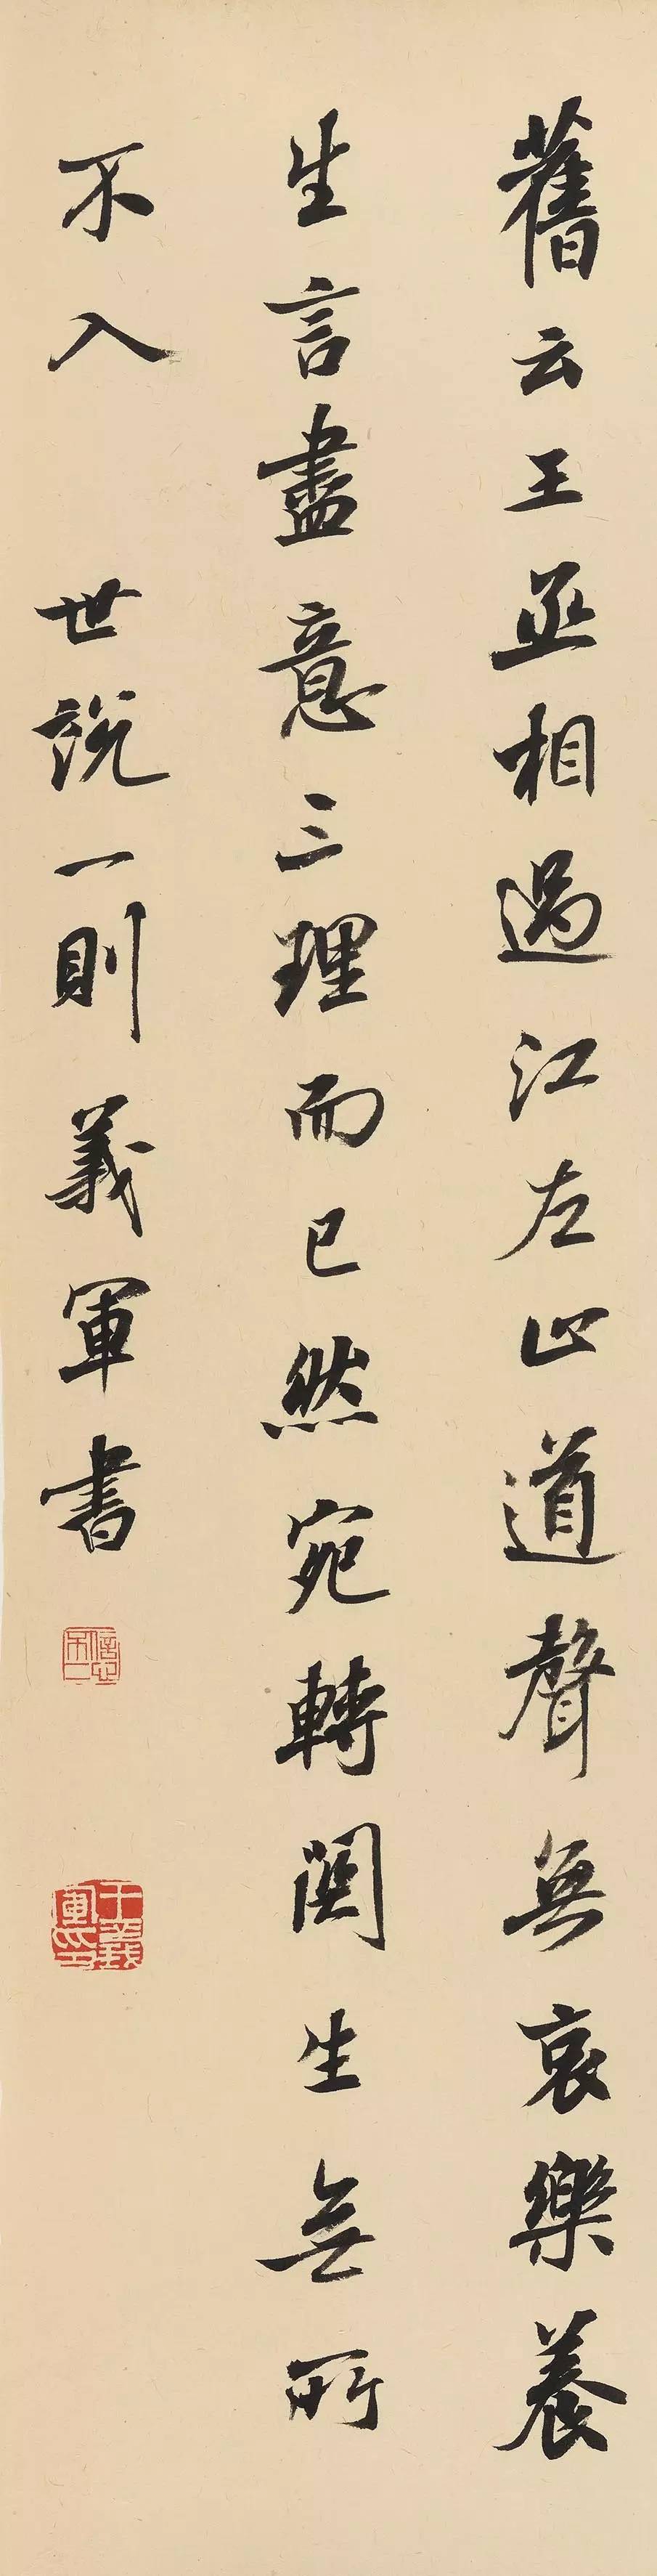 舊云王丞相過江左止道聲無哀樂養
生言盡意三理而已然宛轉關生無所
不入 世說一則 義軍書
王義軍印